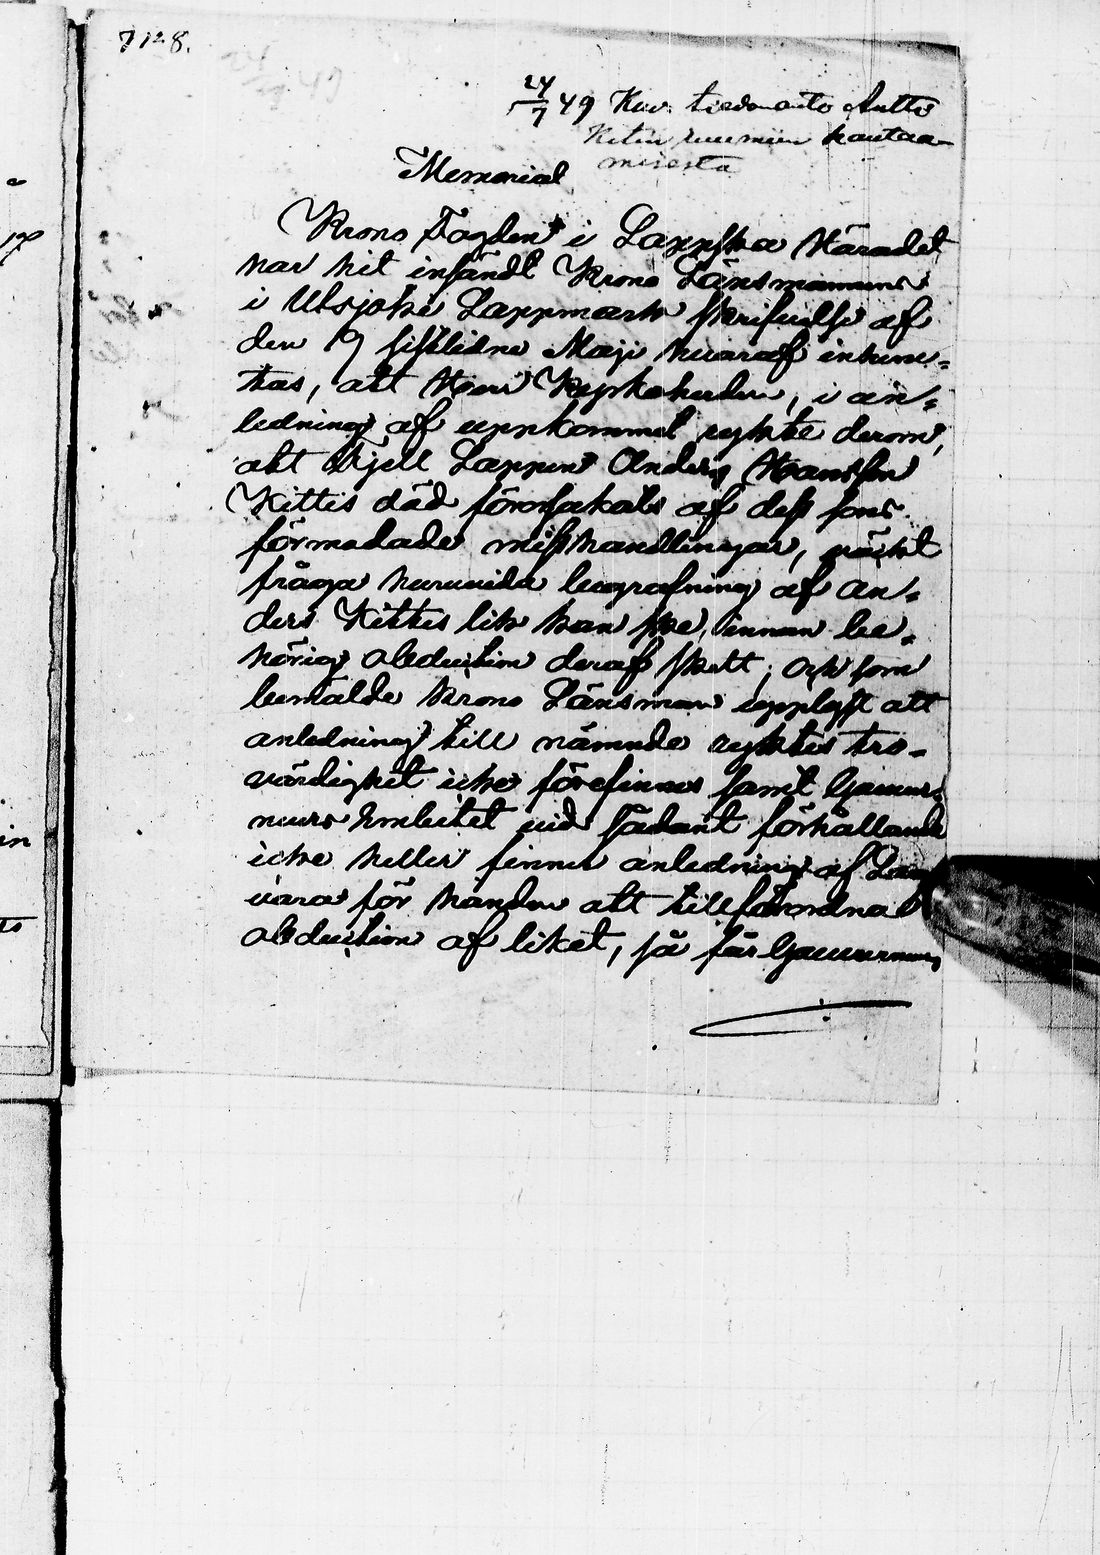 7128.
24/7 49 Kuv. tiedonanto Antti
Kitin ruumiin hautaa-
misesta
Memorial
Krono Fogden i Lappska Häradet
har hit insändt Krono Länsmannens
i Utsjoki Lappmark skrifvelse af
den 19 sistlidne Maji hvaraf inhem-
tas, att Herr Kyrkoherden, i an-
ledning af uppkommet rykte derom,
att Fjell Lappen Anders Hansson
Kittis död förorsakats af dess sons
förmodade misshandlingar, väckt
fråga huruvida begrafning af An-
ders Kittis lik kan ske, innan be-
hörig obduction deraf skett; och som
bemälde Krono Länsman upplyst att
anledning till nämnde ryktes tro-
värdighet icke förefinnes samt Gouver-
neurs Embetet vid sådant förhållande
icke heller finner anledning af Lag
vara för handen att tillförordna
obduction af liket, så får Gouverneurs